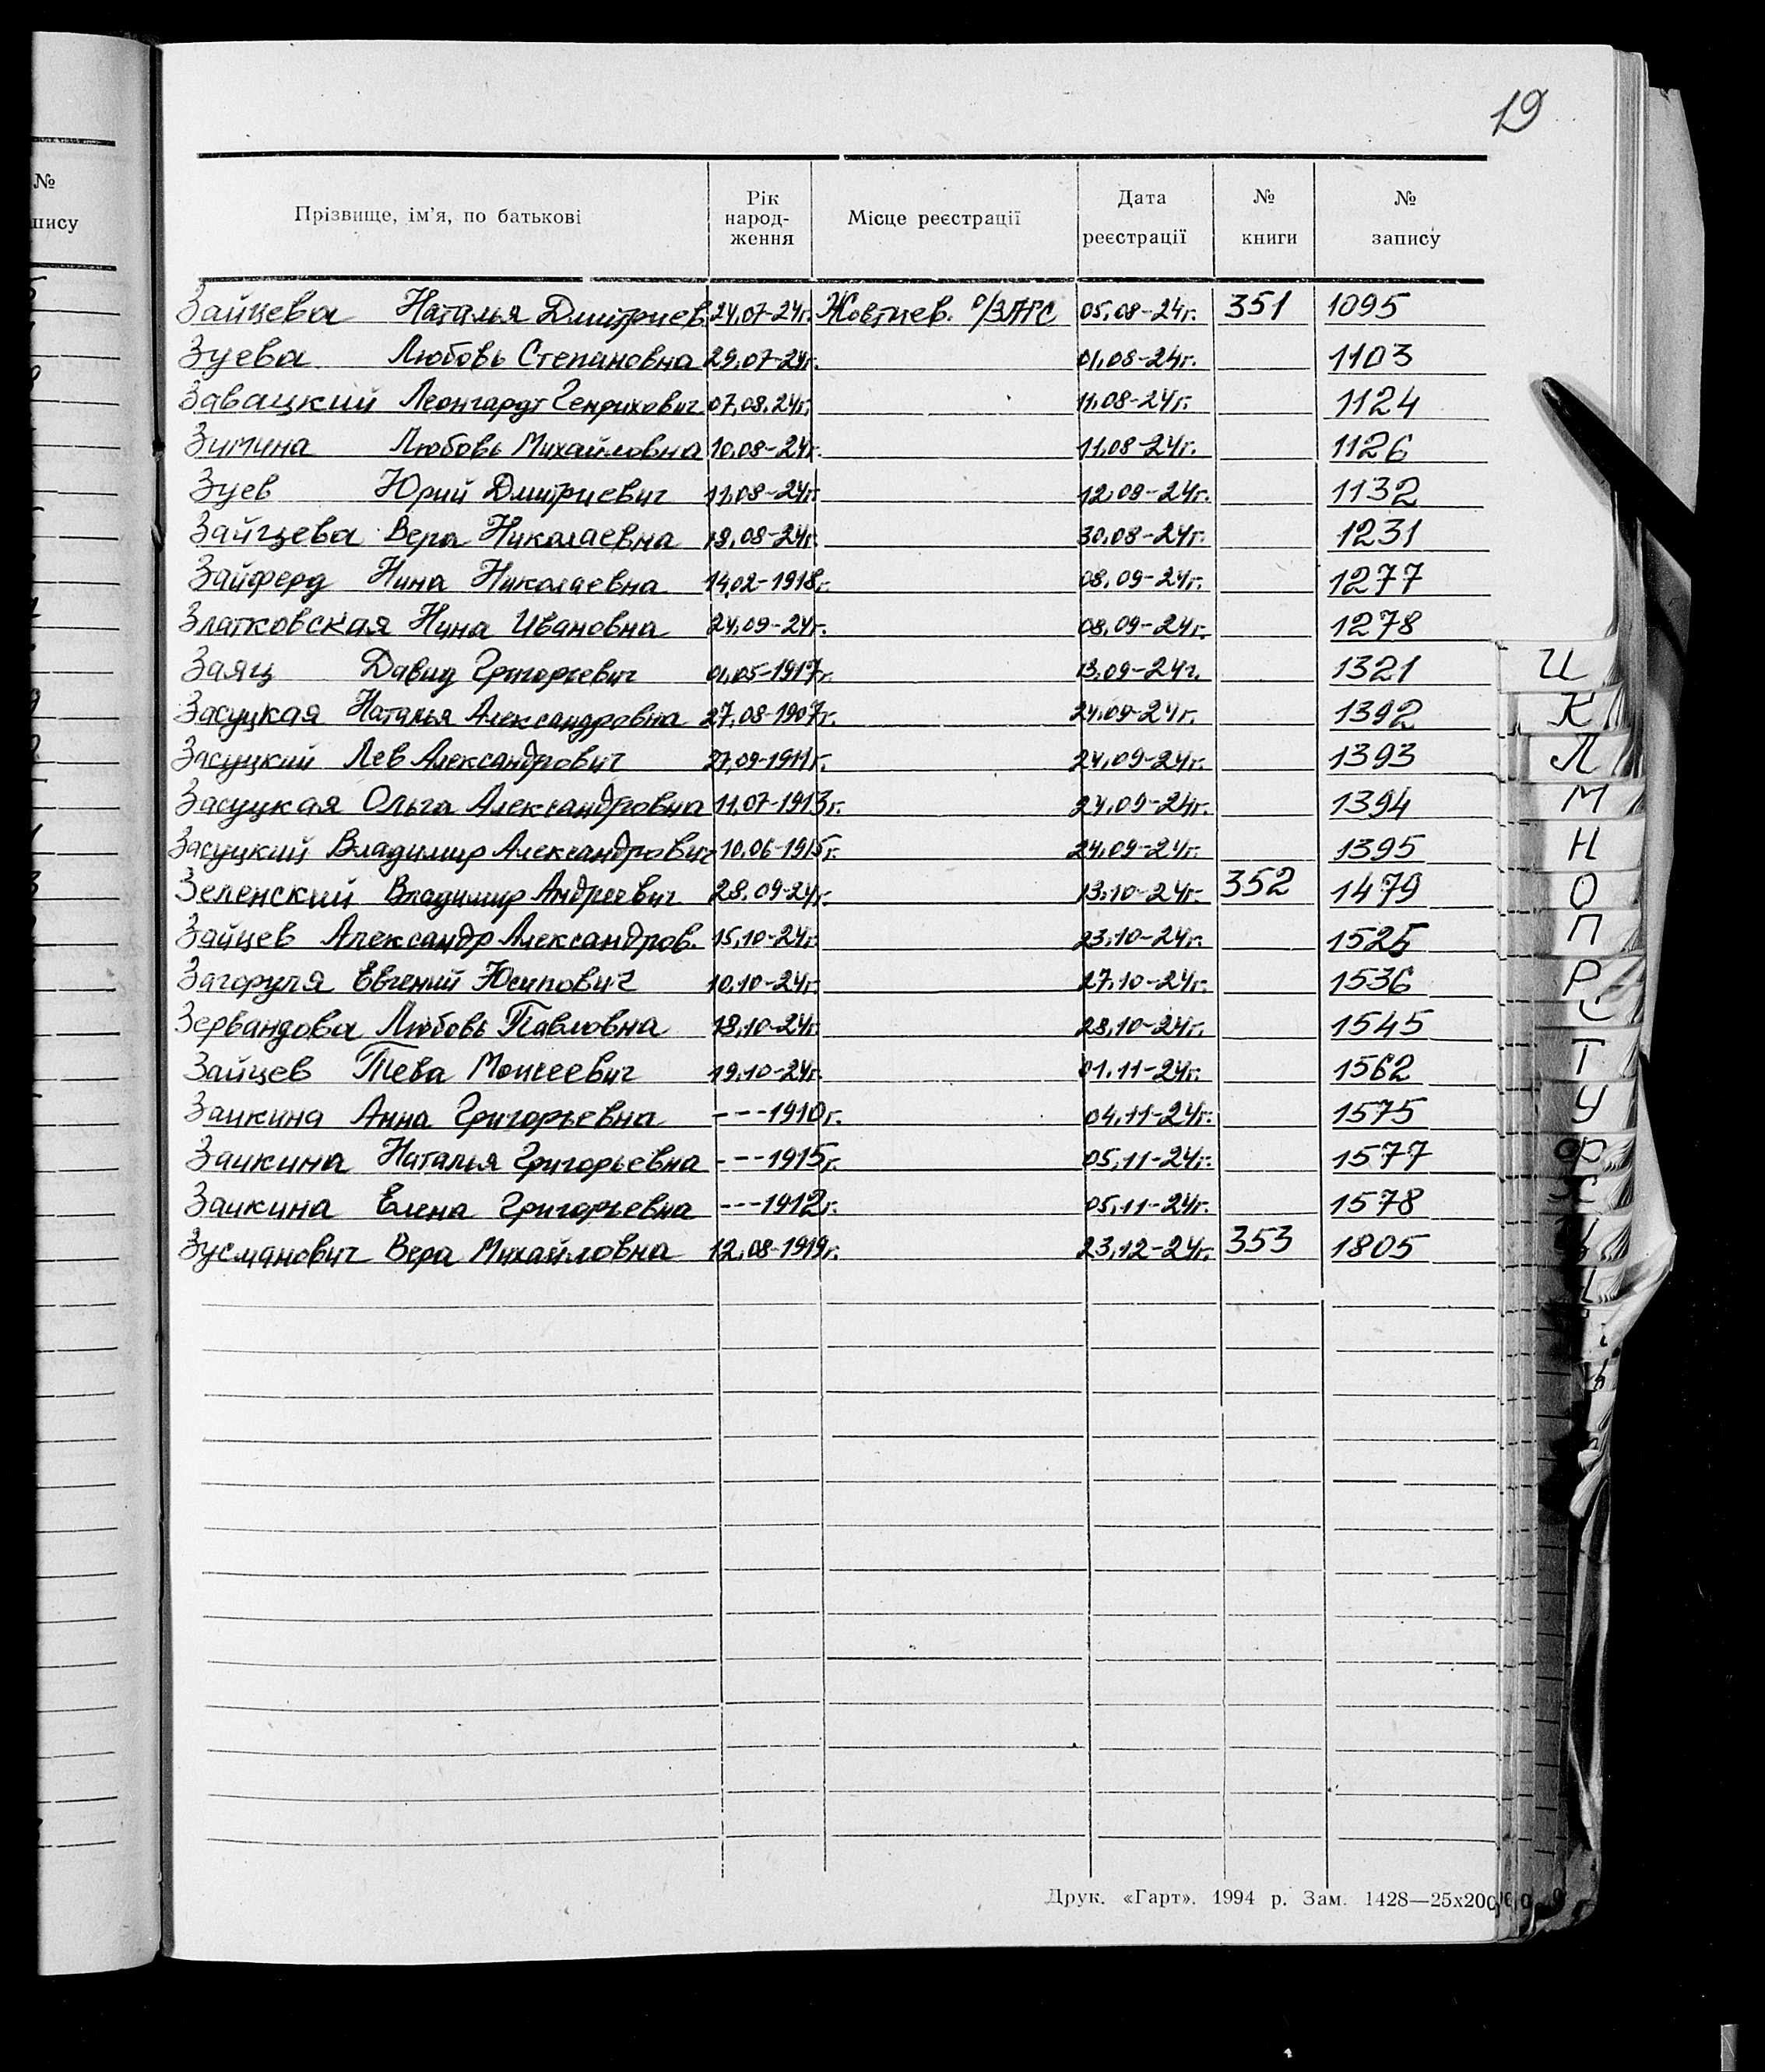 19
№
пису
Прізвище, ім'я, по батькові
Рік народ-ження
Місце реєстрації
Дата реєстрації
№ книги
№ запису
Зайцева Наталья Дмитриев. 24.07-24г. Жовтнев. о/ЗАГС 05.08-24г. 351 1095
Зуева Любовь Степановна 29.07-24г. 01.08-24г. 1103
Завацкий Леонгардт Генрихович 07.08.24г. 11.08-24г. 1124
Зимина Любовь Михайловна 10.08-24г. 11.08-24г. 1126
Зуев Юрий Дмитриевич 11.08-24г. 12.08-24г. 1132
Зайцева Вера Николаевна 19.08-24г. 30.08-24г. 1231
Зайферд Нина Николаевна 14.02-1918г. 08.09-24г. 1277
Златковская Нина Ивановна 24.09-24г. 08.09-24г. 1278
Заяц Давид Григорьевич 01.05-1917г. 13.09-24г. 1321
Засуцкая Наталья Александровна 27.08-1907г. 24.09-24г. 1392
Засуцкий Лев Александрович 27.09-1911г. 24.09-24г. 1393
Засуцкая Ольга Александровна 11.07-1913г. 24.09-24г. 1394
Засуцкий Владимир Александрович 10.06-1915г. 24.09-24г. 1395
Зеленский Владимир Андреевич 28.09-24г. 13.10-24г. 352 1479
Зайцев Александр Александров. 15.10-24г. 23.10-24г. 1525
Загоруля Евгений Юсипович 10.10-24г. 27.10-24г. 1536
Зервандова Любовь Павловна 18.10-24г. 28.10-24г. 1545
Зайцев Тева Моисеевич 19.10-24г. 01.11-24г. 1562
Заикина Анна Григорьевна ---1910г. 04.11-24г. 1575
Заикина Наталья Григорьевна ---1915г. 05.11-24г. 1577
Заикина Елена Григорьевна ---1912г. 05.11-24г. 1578
Зусманович Вера Михайловна 12.08-1919г. 23.12-24г. 353 1805
И
К
Л
М
Н
О
П
Р
С
Т
У
Ф
Х
Друк. «Гарт». 1994 р. Зам. 1428—25х200